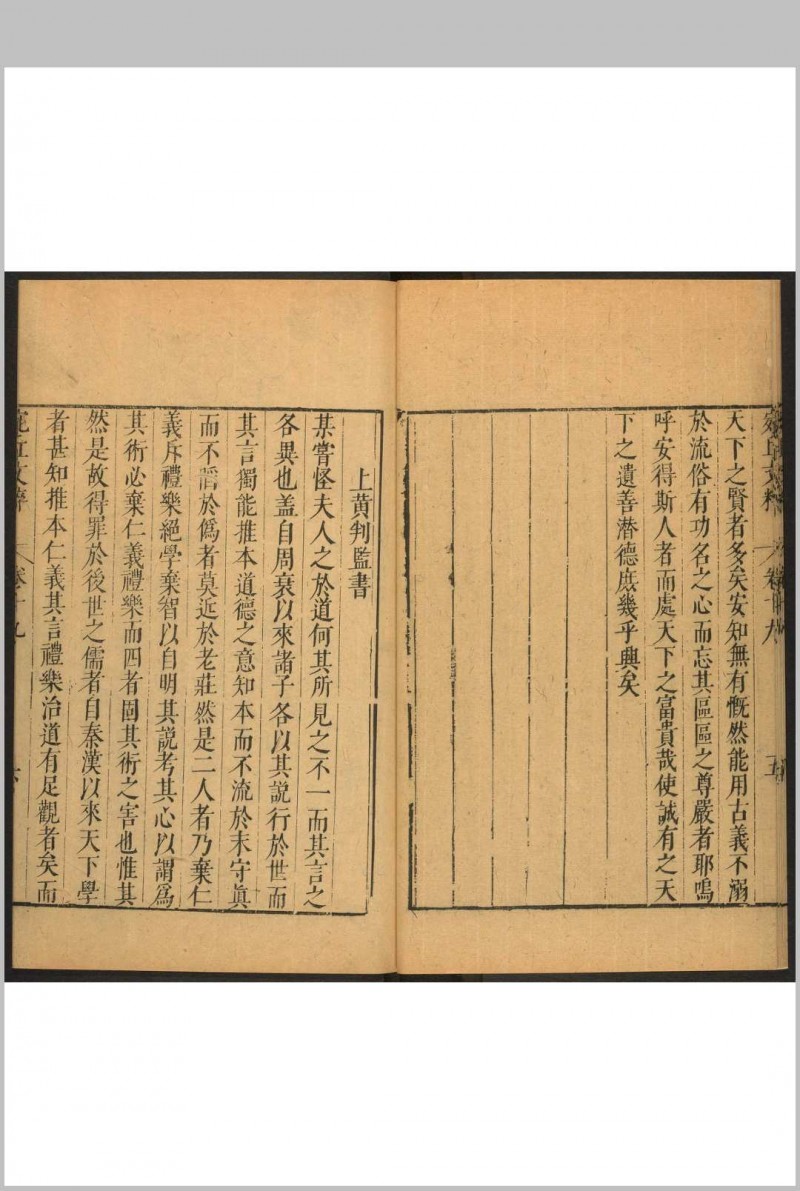 天下之賢者多矣安知無有慨然能用古義不溺
於流俗有功名之心而忘其區區之尊嚴者耶嗚
呼安得斯人者而處天下之富貴哉使誠有之天
下之遺善潜德庶幾乎興矣
上黄判監書
某嘗怪夫人之於道何其所見之不一而其言之
各異也盖自周衰以來諸子各以其說行於世而
其言獨能推本道德之意知本而不流於末守眞
而不謟於僞者莫近於老莊然是二人者乃棄仁
義斥禮樂絕學棄智以自明其說考其心以謂爲
其術必棄仁義禮樂而四者固其術之害也惟其
然是故得罪於後世之儒者自秦漢以來天下學
者甚知推本仁義其言禮樂治道有足觀者矣而